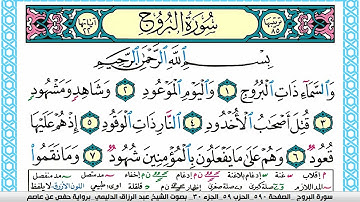 سُورَةُ الْبُرُوجِ
بِسْمِ اللَّهِ الرَّحْمَٰنِ الرَّحِيمِ
وَالسَّمَاءِ ذَاتِ الْبُرُوجِ ١ وَالْيَوْمِ الْمَوْعُودِ ٢ وَشَاهِدٍ وَمَشْهُودٍ
٣ قُتِلَ أَصْحَابُ الْأُخْدُودِ ٤ النَّارِ ذَاتِ الْوَقُودِ ٥ إِذْ هُمْ عَلَيْهَا
قُعُودٌ ٦ وَهُمْ عَلَىٰ مَا يَفْعَلُونَ بِالْمُؤْمِنِينَ شُهُودٌ ٧ وَمَا نَقَمُوا
سورة البروج الصفحة ٥٩٠ الحزب ٥٩ الجزء ٣٠ بصوت الشيخ عبد الرزاق الدليمي برواية حفص عن عاصم